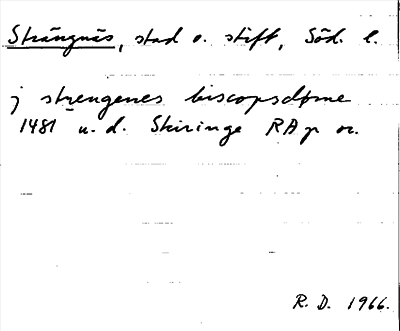 Strängnäs, stad o. stift, Söd. l.
j strengenes biscopsdøme
1481 u. d. Skiringe RAp or.
R. D. 1966.